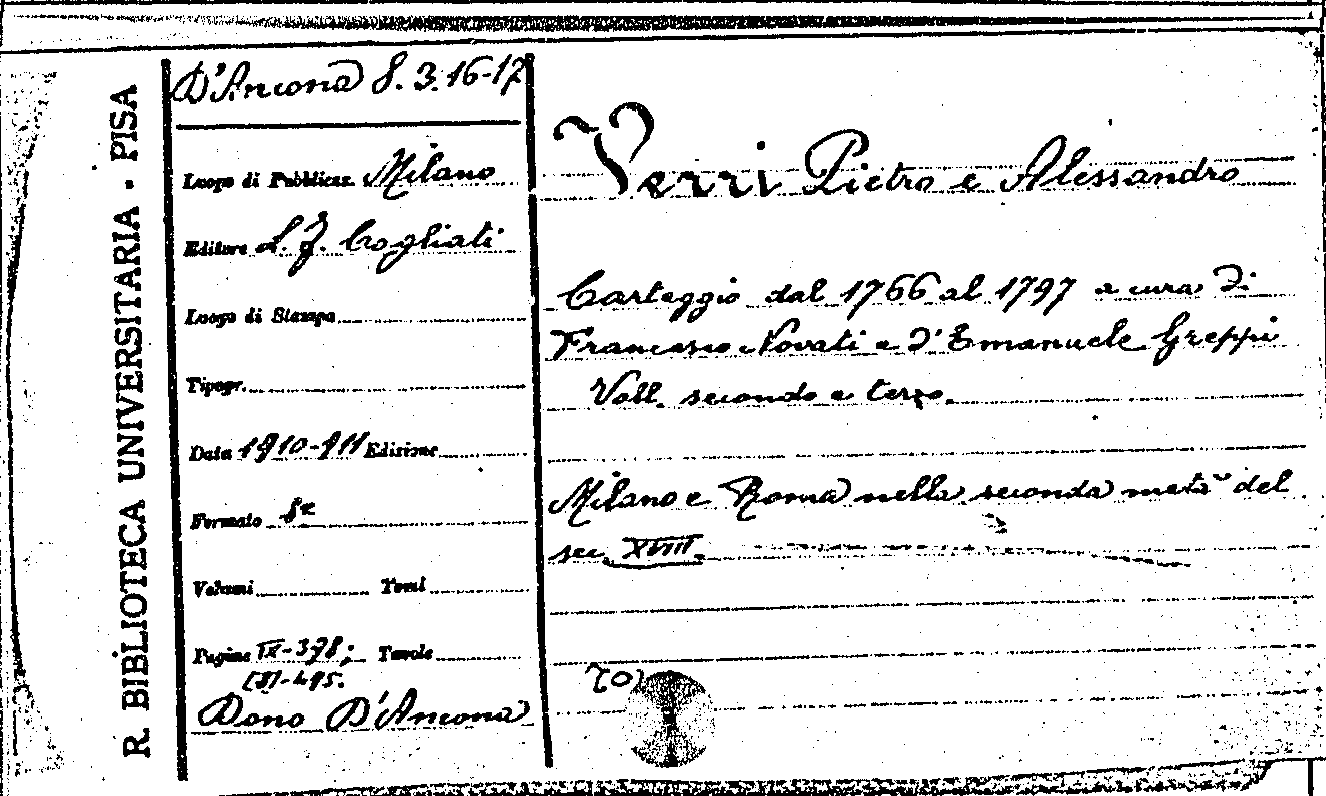 R. BIBLIOTECA UNIVERSITARIA - PISA
D'Ancona 8. 3. 16-17
Luogo di Pubblicaz. Milano
Editore L. F. Cogliati
Luogo di Stampa
Tipogr.
Data 1910-911 Edizione
Formato 8º
Volumi Tomi
Pagine IX-378; Tavole
[8]-495.
Dono D'Ancona
Verri Pietro e Alessandro
Carteggio dal 1766 al 1797 a cura di
Francesco Novati e d'Emanuele Greppi
Voll. secondo e terzo.
Milano e Roma nella seconda metà del
sec. XVIII.